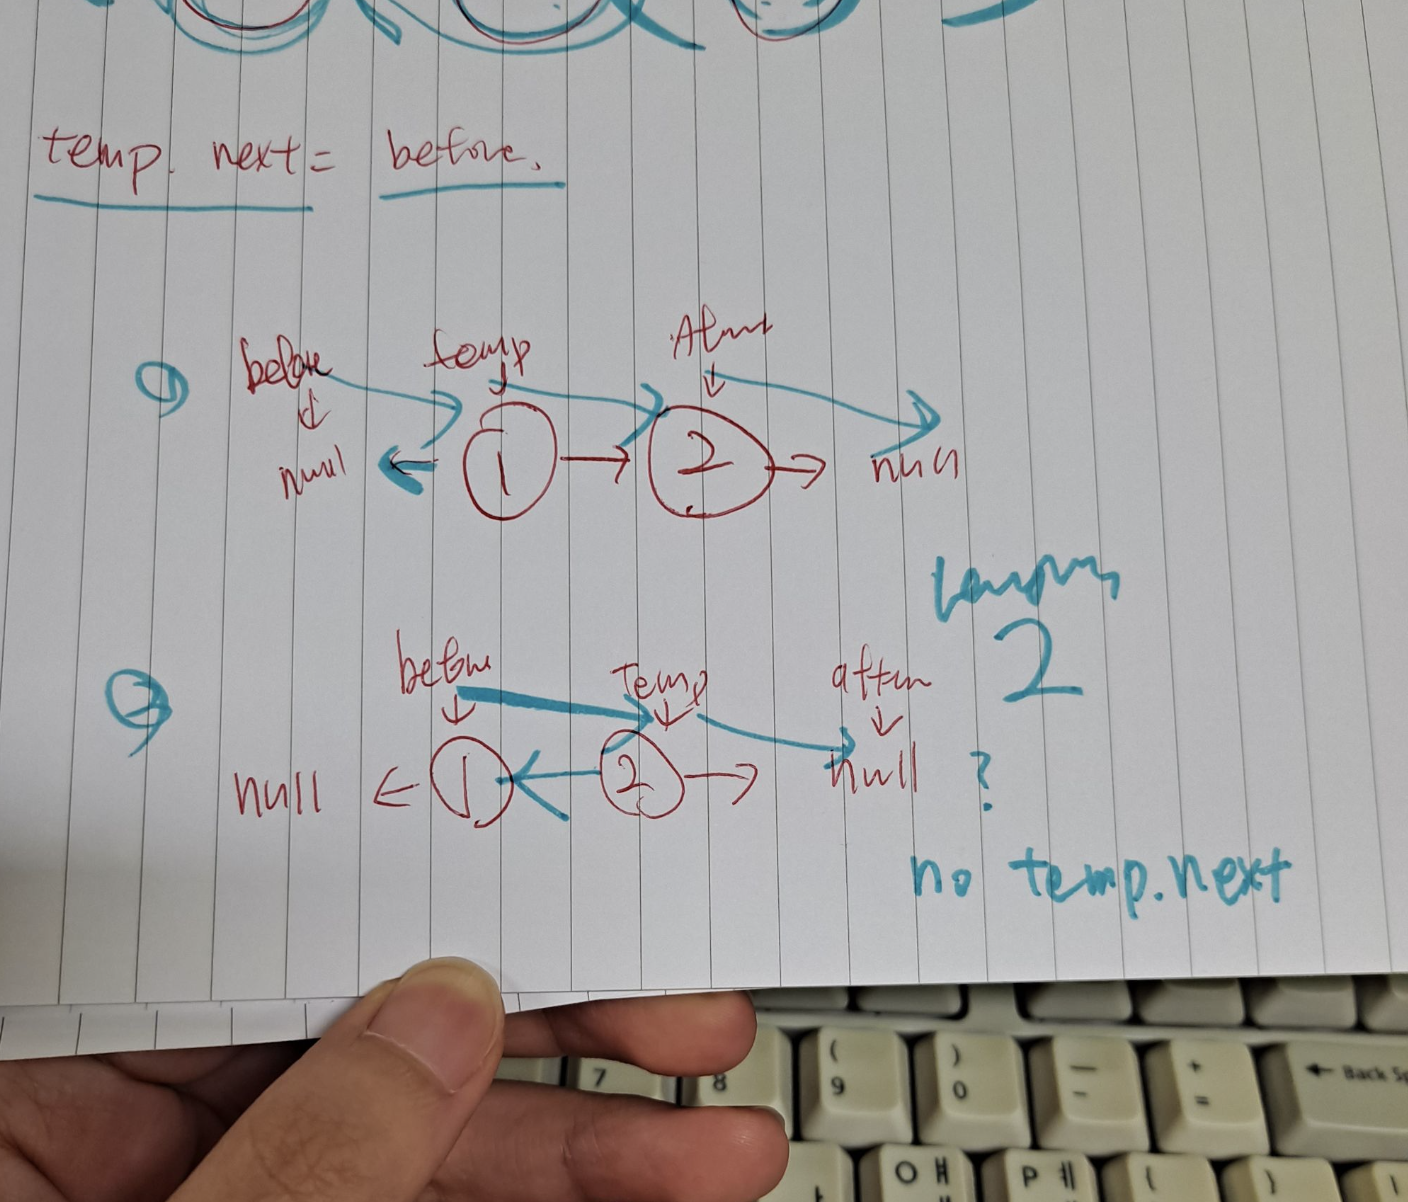 temp. next = before.
① before temp After
null 1 2 null
② before Temp after
null 1 2 null ?
2
no temp.next
7 8 ( 9 ) 0 — - + = ← Back Sp
ㅇ ㅐ P ㅔ { }